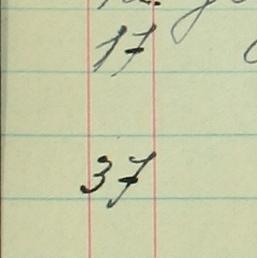 17
37